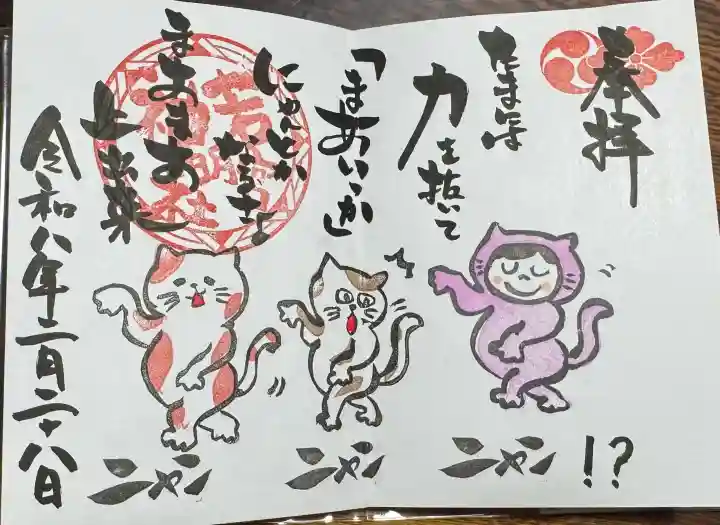 奉拝
たまには
力を抜いて
「まあいっか」
にゃんとか
なるさ
まあまあ
上出来
令和八年二月二十八日
ニャン!?
ニャン
ニャン